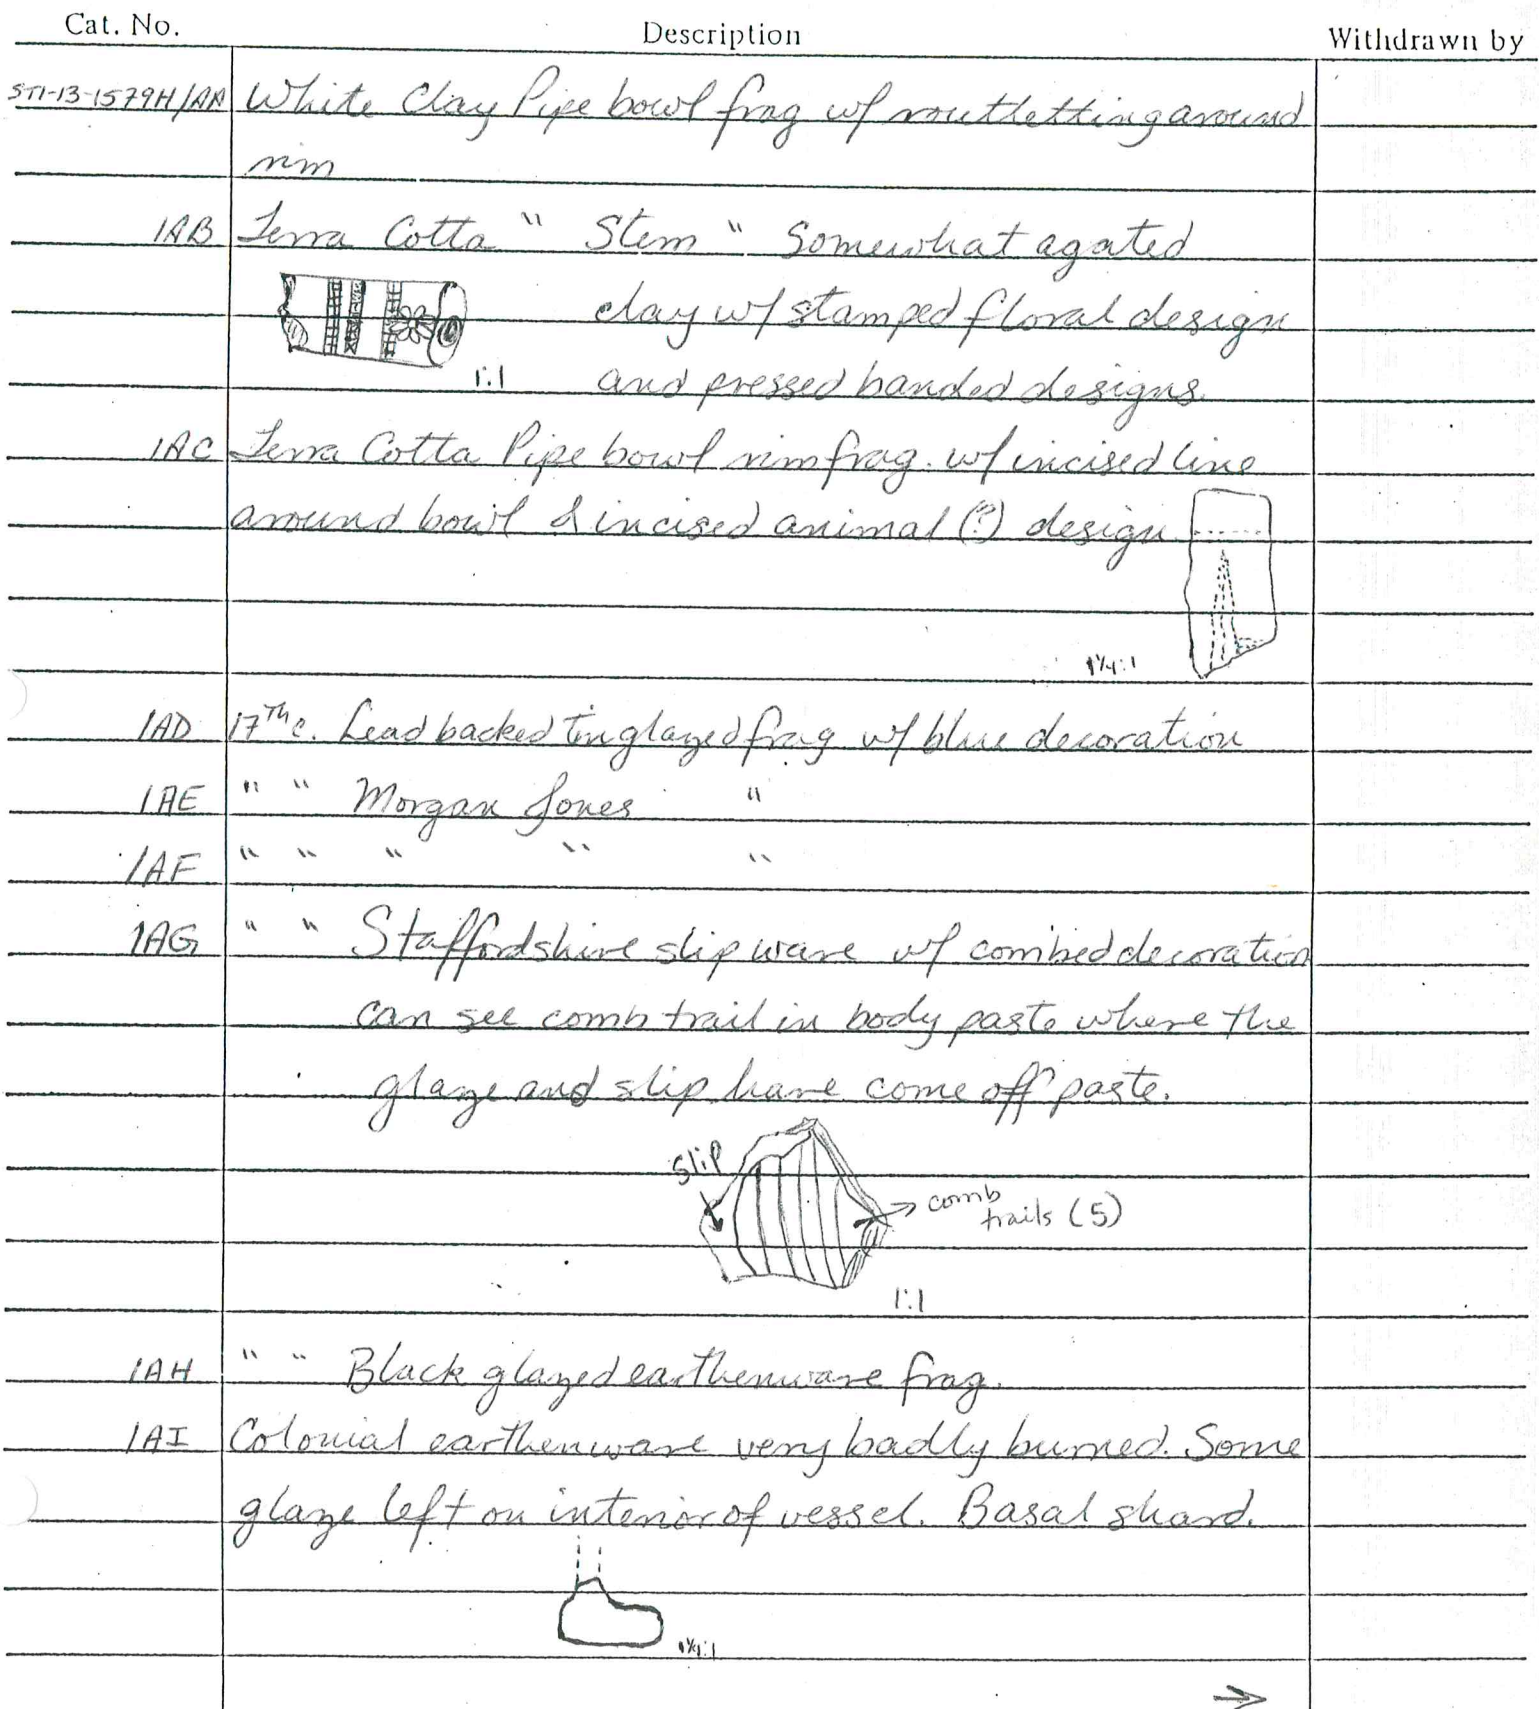 Cat. No. Description Withdrawn by
ST1-13-1579H/AA White Clay Pipe bowl frag w/ rouletting around
rim
1AB Terra Cotta " Stem " Somewhat agated
clay w/ stamped floral design
1:1 and pressed banded designs.
1AC Terra Cotta Pipe bowl rim frag. w/ incised line
around bowl & incised animal (?) design
1¼:1
1AD 17th c. Lead backed tin glazed frag w/ blue decoration
1AE " " Morgan Jones "
1AF " " " " "
1AG " " Staffordshire slip ware w/ combed decoration
can see comb trail in body paste where the
glaze and slip have come off paste.
slip
comb
trails (5)
1:1
1AH " " Black glazed earthenware frag.
1AI Colonial earthenware very badly burned. Some
glaze left on interior of vessel. Basal shard.
1¼:1
→